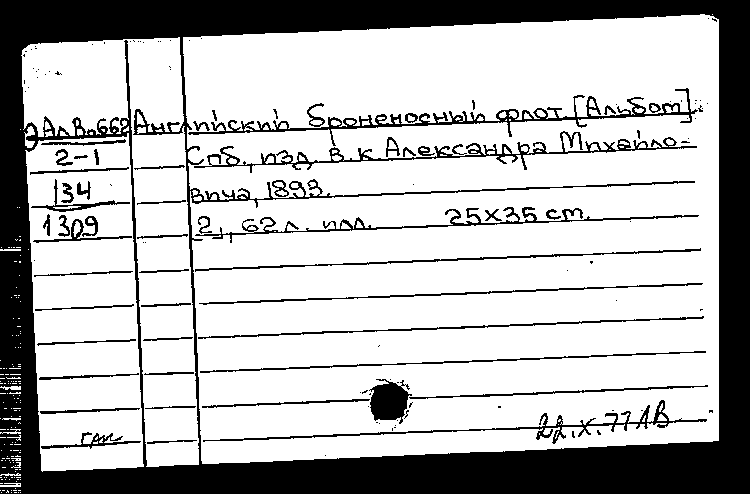 Э Ал В. 662 Английский броненосный флот [Альбом].
2-1 Спб., изд. в. к Александра Михайло-
134 вича, 1893.
1309 2, 62 л. илл. 25×35 cm.
22.X.77 ЛВ